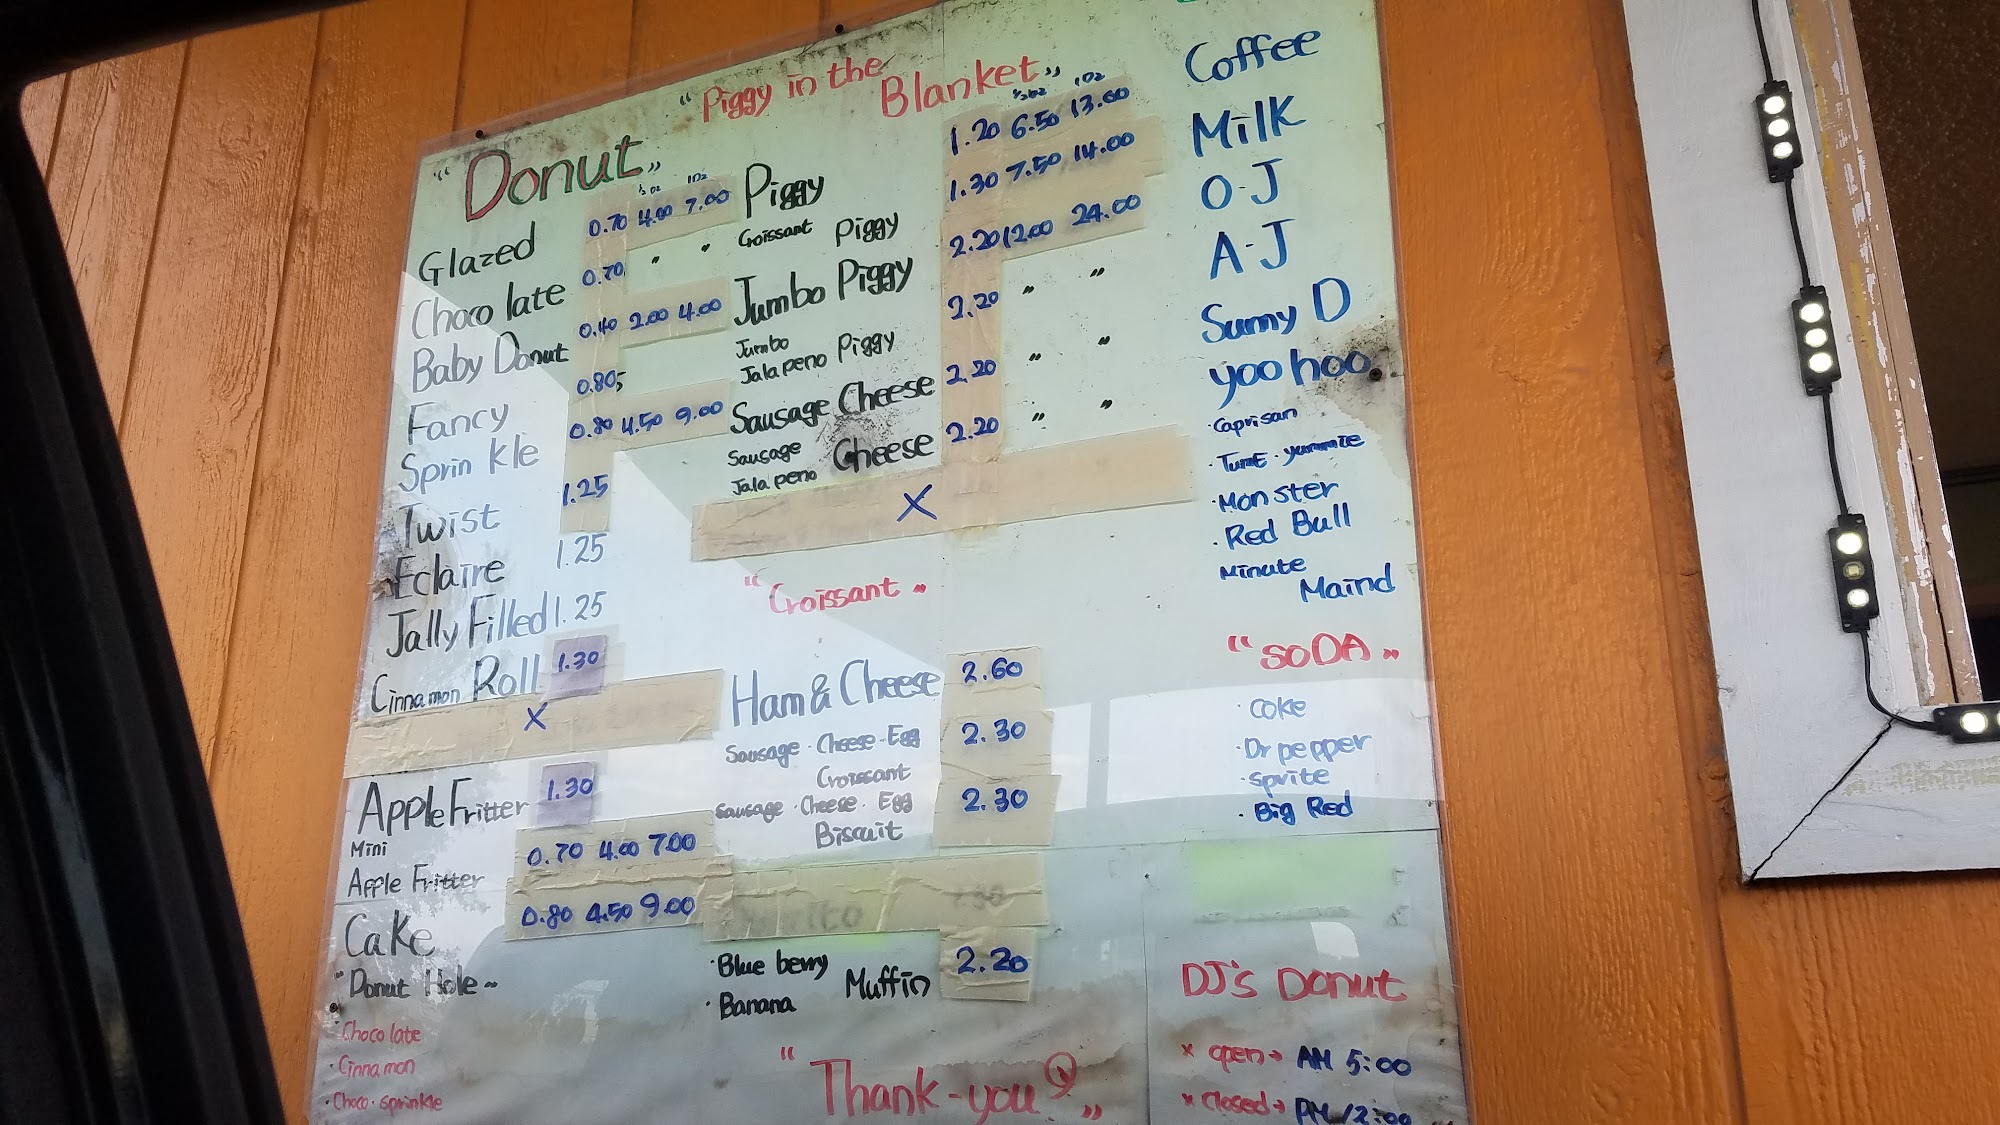 "Donut"
½ oz 1oz
Glazed 0.70 4.00 7.00
Chocolate 0.70 " "
Baby Donut 0.40 2.00 4.00
Fancy 0.80
Sprinkle 0.80 4.50 9.00
Twist 1.25
Eclaire 1.25
Jally Filled 1.25
Cinnamon Roll 1.30
X
Apple Fritter 1.30
Mini
Apple Fritter 0.70 4.00 7.00
Cake 0.80 4.50 9.00
"Donut Hole~
· Chocolate
· Cinnamon
· Choco · sprinkle
"Piggy in the
Blanket"
½ oz 1 oz
Piggy 1.20 6.50 13.00
Croissant Piggy 1.30 7.50 14.00
Jumbo Piggy 2.20 12.00 24.00
Jumbo
Jalapeno Piggy 2.20 " "
Sausage Cheese 2.20 " "
Sausage
Jalapeno Cheese 2.20 " "
X
"Croissant"
Ham & Cheese 2.60
Sausage · Cheese · Egg
Croissant 2.30
Sausage · Cheese · Egg
Biscuit 2.30
· Blue berry
· Banana
Muffin 2.20
"Thank-you"
Coffee
Milk
O-J
A-J
Sunny D
yoohoo
· Caprisan
· Tumt · yummie
· Monster
· Red Bull
Minute
Maind
"SODA"
· coke
· Dr pepper
· sprite
· Big Red
DJ's Donut
x open → AM 5:00
x closed → PM 12:00